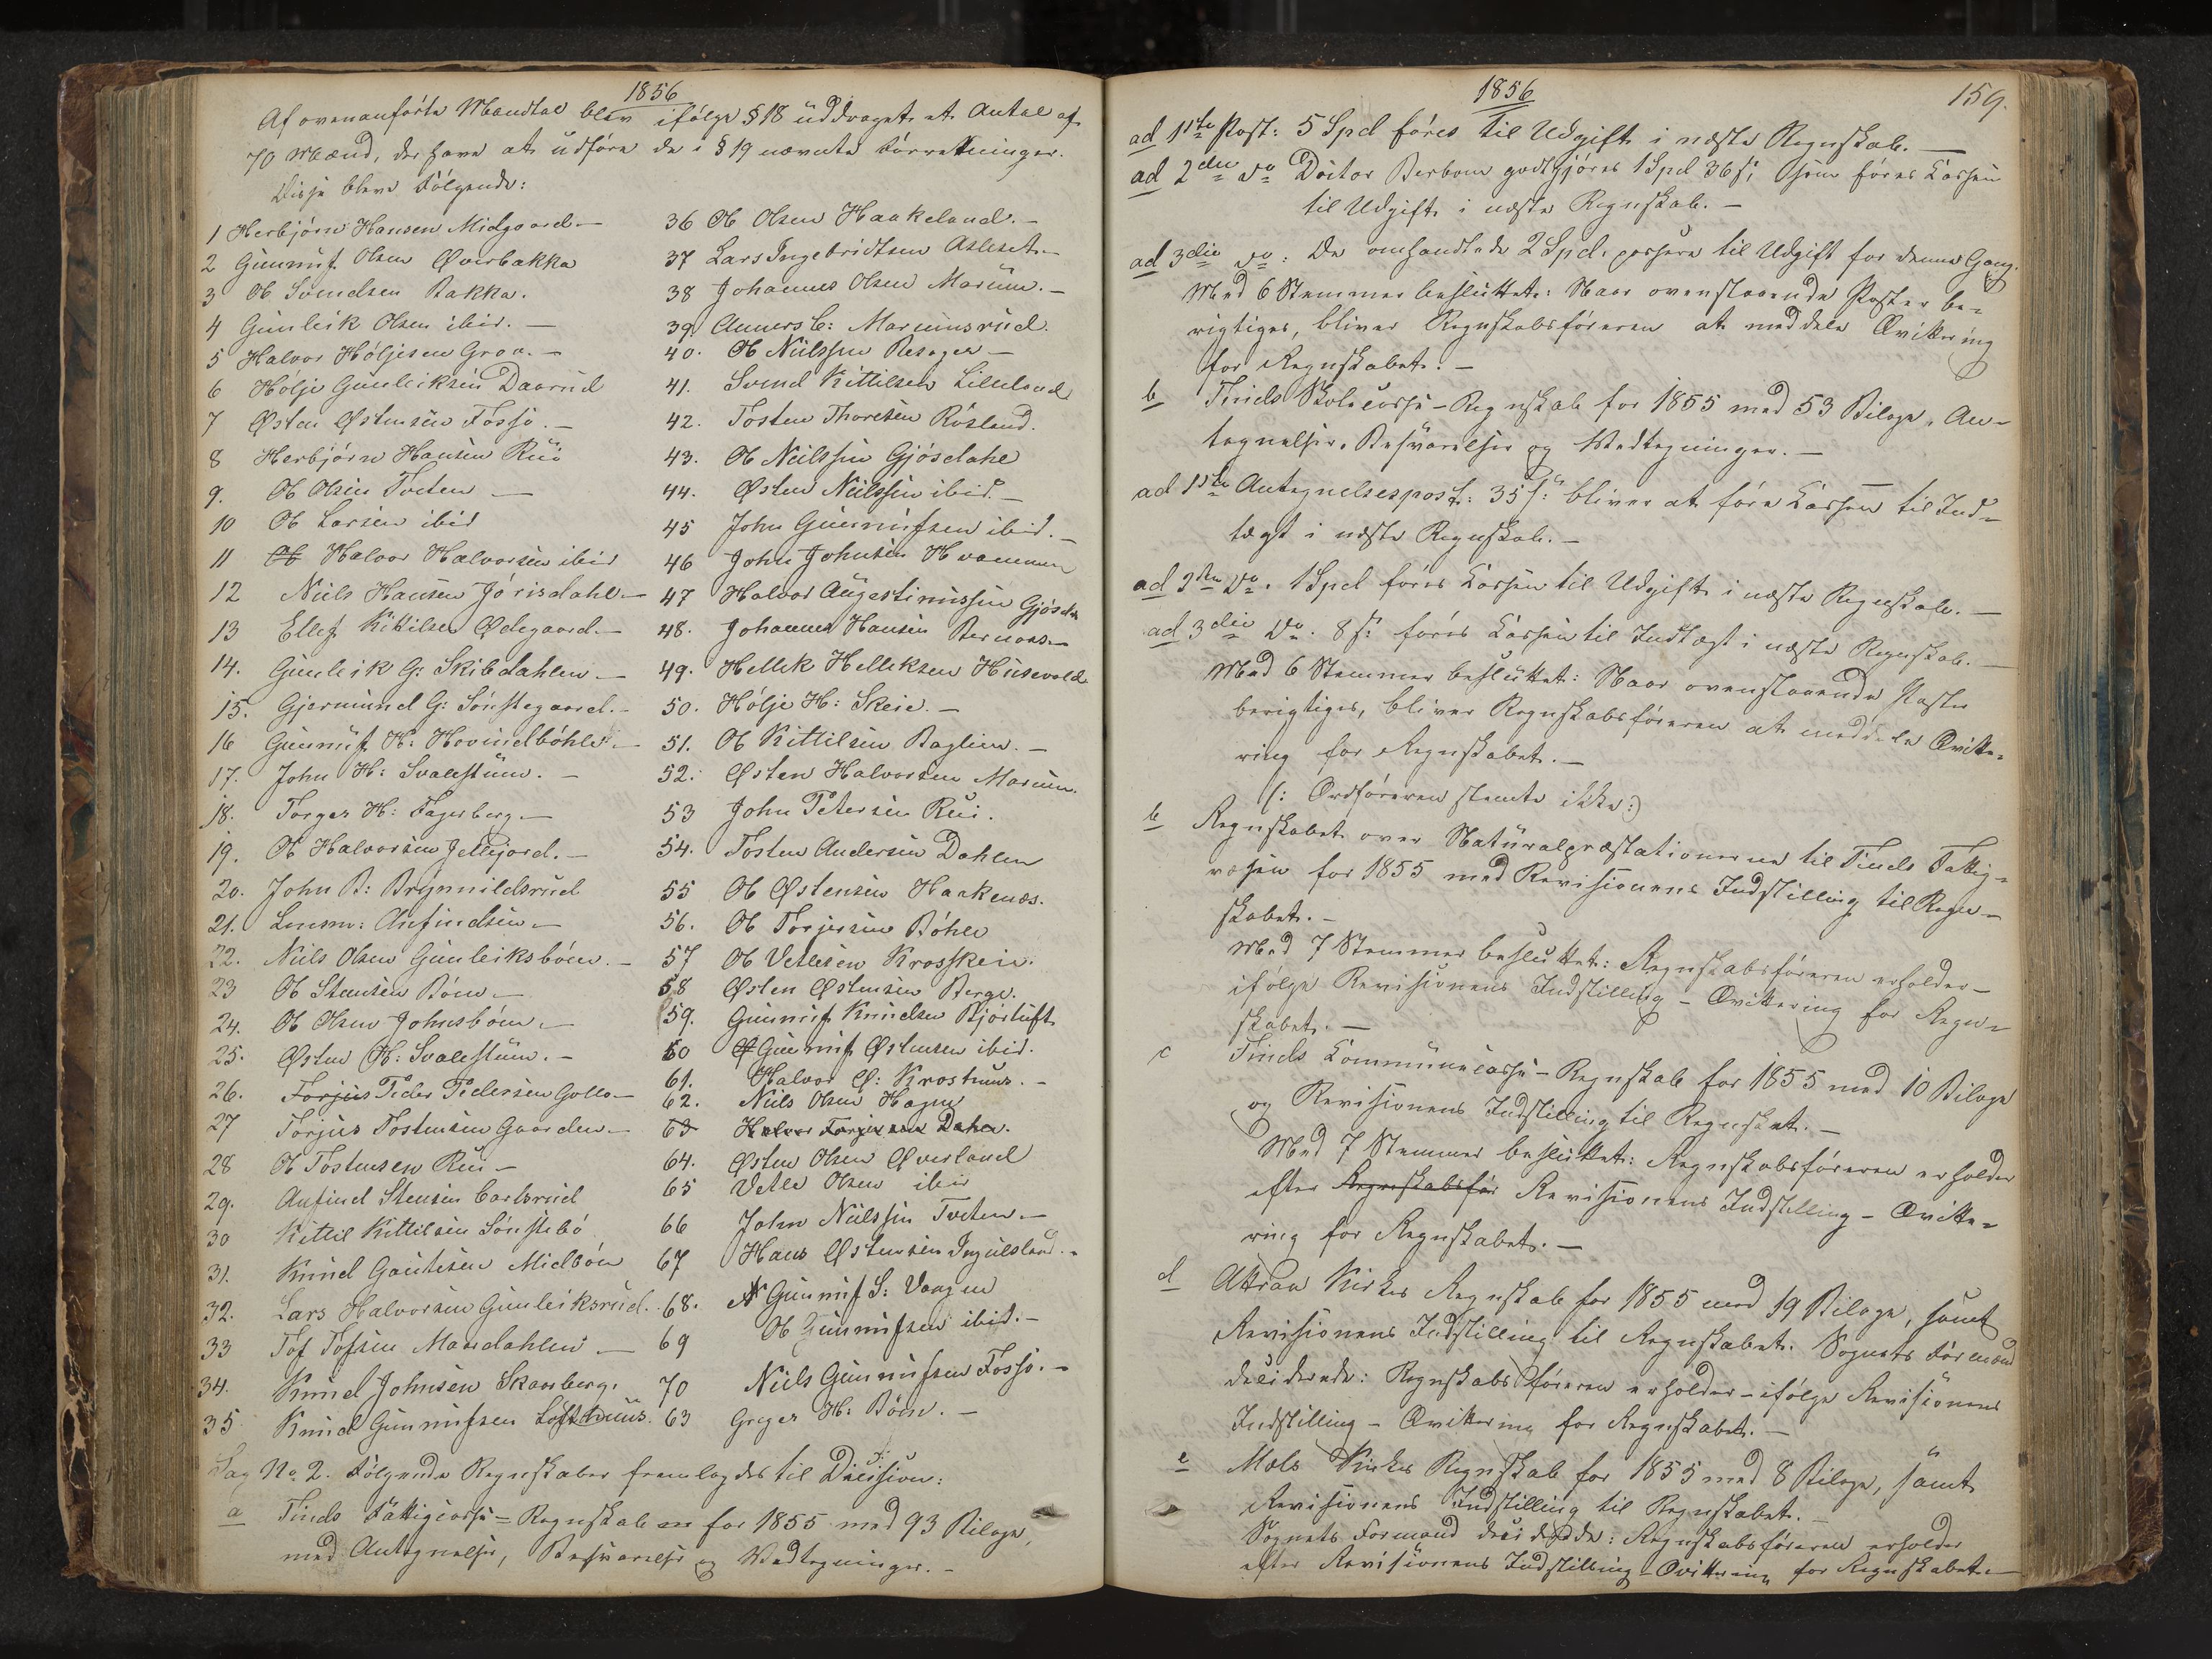 1856
Af ovenanførte Mandtal blev ifølge § 18 uddraget et Antal af
70 Mænd, der have at udføre de i § 19 nævnte Forretninger.
Disse bleve Følgende:
1 Herbjørn Hansen Midgaard.—
2 Gunnuf Olsen Øverbakka
3 Ole Svendsen Bakka.
4 Gunleik Olsen ibid.—
5 Halvor Høljesen Groa.—
6 Hølje Gunleiksen Daarud
7 Østen Østensen Fosso.—
8 Herbjørn Hansen Rui
9. Ole Olsen Tveten—
10 Ole Larsen ibid
11 Halvor Halvorsen ibid
12 Niels Hansen Jørisdahl.—
13 Ellef Kittilsen Ødegaard.—
14. Gunleik G: Skibdahlen.—
15. Gjermund G: Sønstegaard.—
16 Gunnuf H: Hovindbøhle.—
17. John H: Svalestuen.—
18. Torger H: Fagerberg.—
19. Ole Halvorsen Jellejord.—
20. John B: Brynnildsrud
21. Lensm: Anfindsen.—
22. Niels Olsen Gunleiksbøen.—
23 Ole Stensen Bøen.—
24. Ole Olsen Johnsbøen.—
25. Østen H: Svalestuen.—
26. Torjus Peder Pedersen Gollo—
27 Torjus Tostensen Gaarden.—
28 Ole Tostensen Rui—
29. Anfind Stensen Carlsrud
30 Kittil Kittilsen Sønstebø
31. Knud Gautesen Midbøen
32. Lars Halvorsen Gunleiksrud.
33 Tof Tofsen Maardahlen—
34. Knud Johnsen Skaarberg.
35. Knud Gunnufsen Lofthuus.
36 Ole Olsen Haakeland.—
37 Lars Ingebridtsen Asleset.—
38 Johannes Olsen Marum.—
39. Anners C: Marumsrud.
40. Ole Nielssen Besager—
41. Svend Kittilsen Lilleland
42. Tosten Thoresen Røsland.
43. Ole Nielssen Gjøsdahl
44. Østen Nielssen ibid.—
45 John Gunnufsen ibid.—
46 John Johnsen Hvammen
47 Halvor Augestinussen Gjøsdal
48. Johannes Hansen Bernaas.—
49. Hellek Helleksen Husevold
50. Hølje H: Skeie.—
51. Ole Kittilsen Baglien.—
52. Østen Halvorsen Marum.
53 John Petersen Rui.
54. Tosten Andersen Dahlen
55 Ole Østensen Haakenæs.
56. Ole Torjersen Bøhle
57 Ole Vetlesen Krosskeie.
58 Østen Østensen Berge.
59. Gunnuf Knudsen Bjørtuft
60 Gunnuf Østensen ibid.
61. Halvor Ø: Kroshuus.—
62. Niels Olsen Hagen
63 Halvor Torjersen Dahle.
64. Østen Olsen Øverland
65 Vetle Olsen ibid
66 John Nielssen Tveten.—
67 Hans Østensen Ingulsland.—
68. Gunnuf S: Vaagen
69 Ole Gunnufsen ibid.—
70 Niels Gunnufsen Fosso.—
63 Greger H: Bøen.—
Sag No 2. Følgende Regnskaber fremlagdes til Decision:
a Tinds Fattigcasse-Regnskab for 1855 med 93 Bilage,
med Antegnelser, Besvarelser og Vedtegninger.—
1856
159.
ad 1ste Post: 5 Spd føres til Udgift i næste Regnskab.—
ad 2den do Doctor Berbom godtgjøres 1 Spd 36 s; som føres Cassen
til Udgift i næste Regnskab.—
ad 3die do: De omhandlede 2 Spd. passere til Udgift for denne Gang.
Med 6 Stemmer besluttet: Naar ovenstaaende Poster be-
rigtiges, bliver Regnskabsføreren at meddele Qvittering
for Regnskabet.—
b Tinds Skolecasse-Regnskab for 1855 med 53 Bilage, An-
tegnelser, Besvarelser og Vedtegninger.—
ad 1ste Antegnelsespost: 35 s: bliver at føre Cassen til Ind-
tægt i næste Regnskab.—
ad 2den do. 1 Spd føres Cassen til Udgift i næste Regnskab.—
ad 3die do: 8 s: føres Cassen til Indtægt i næste Regnskab.—
Med 6 Stemmer besluttet: Naar ovenstaaende Poster
berigtiges, bliver Regnskabsføreren at meddele Qvitte-
ring for Regnskabet.—
(: Ordføreren stemte ikke:)
b Regnskabet over Naturalpræstationerne til Tinds Fattig-
væsen for 1855 med Revisionens Indstilling til Regn-
skabet.—
Med 7 Stemmer besluttet: Regnskabsføreren erholder—
ifølge Revisionens Indstilling—Qvittering for Regn-
skabet.—
c Tinds Communecasse-Regnskab for 1855 med 10 Bilage
og Revisionens Indstilling til Regnskabet.—
Med 7 Stemmer besluttet: Regnskabsføreren erholder
efter Regnskabsfør Revisionens Indstilling—Qvitte-
ring for Regnskabet.—
d Attraa Kirkes Regnskab for 1855 med 19 Bilage, samt
Revisionens Indstilling til Regnskabet. Sognets Formænd
deciderede: Regnskabsføreren erholder—ifølge Revisionens
Indstilling—Qvittering for Regnskabet.—
e Mæls Kirkes Regnskab for 1855 med 8 Bilage, samt
Revisionens Indstilling til Regnskabet.—
Sognets Formænd deciderede: Regnskabsføreren erholder
efter Revisionens Indstilling—Qvittering for Regnskabet.—